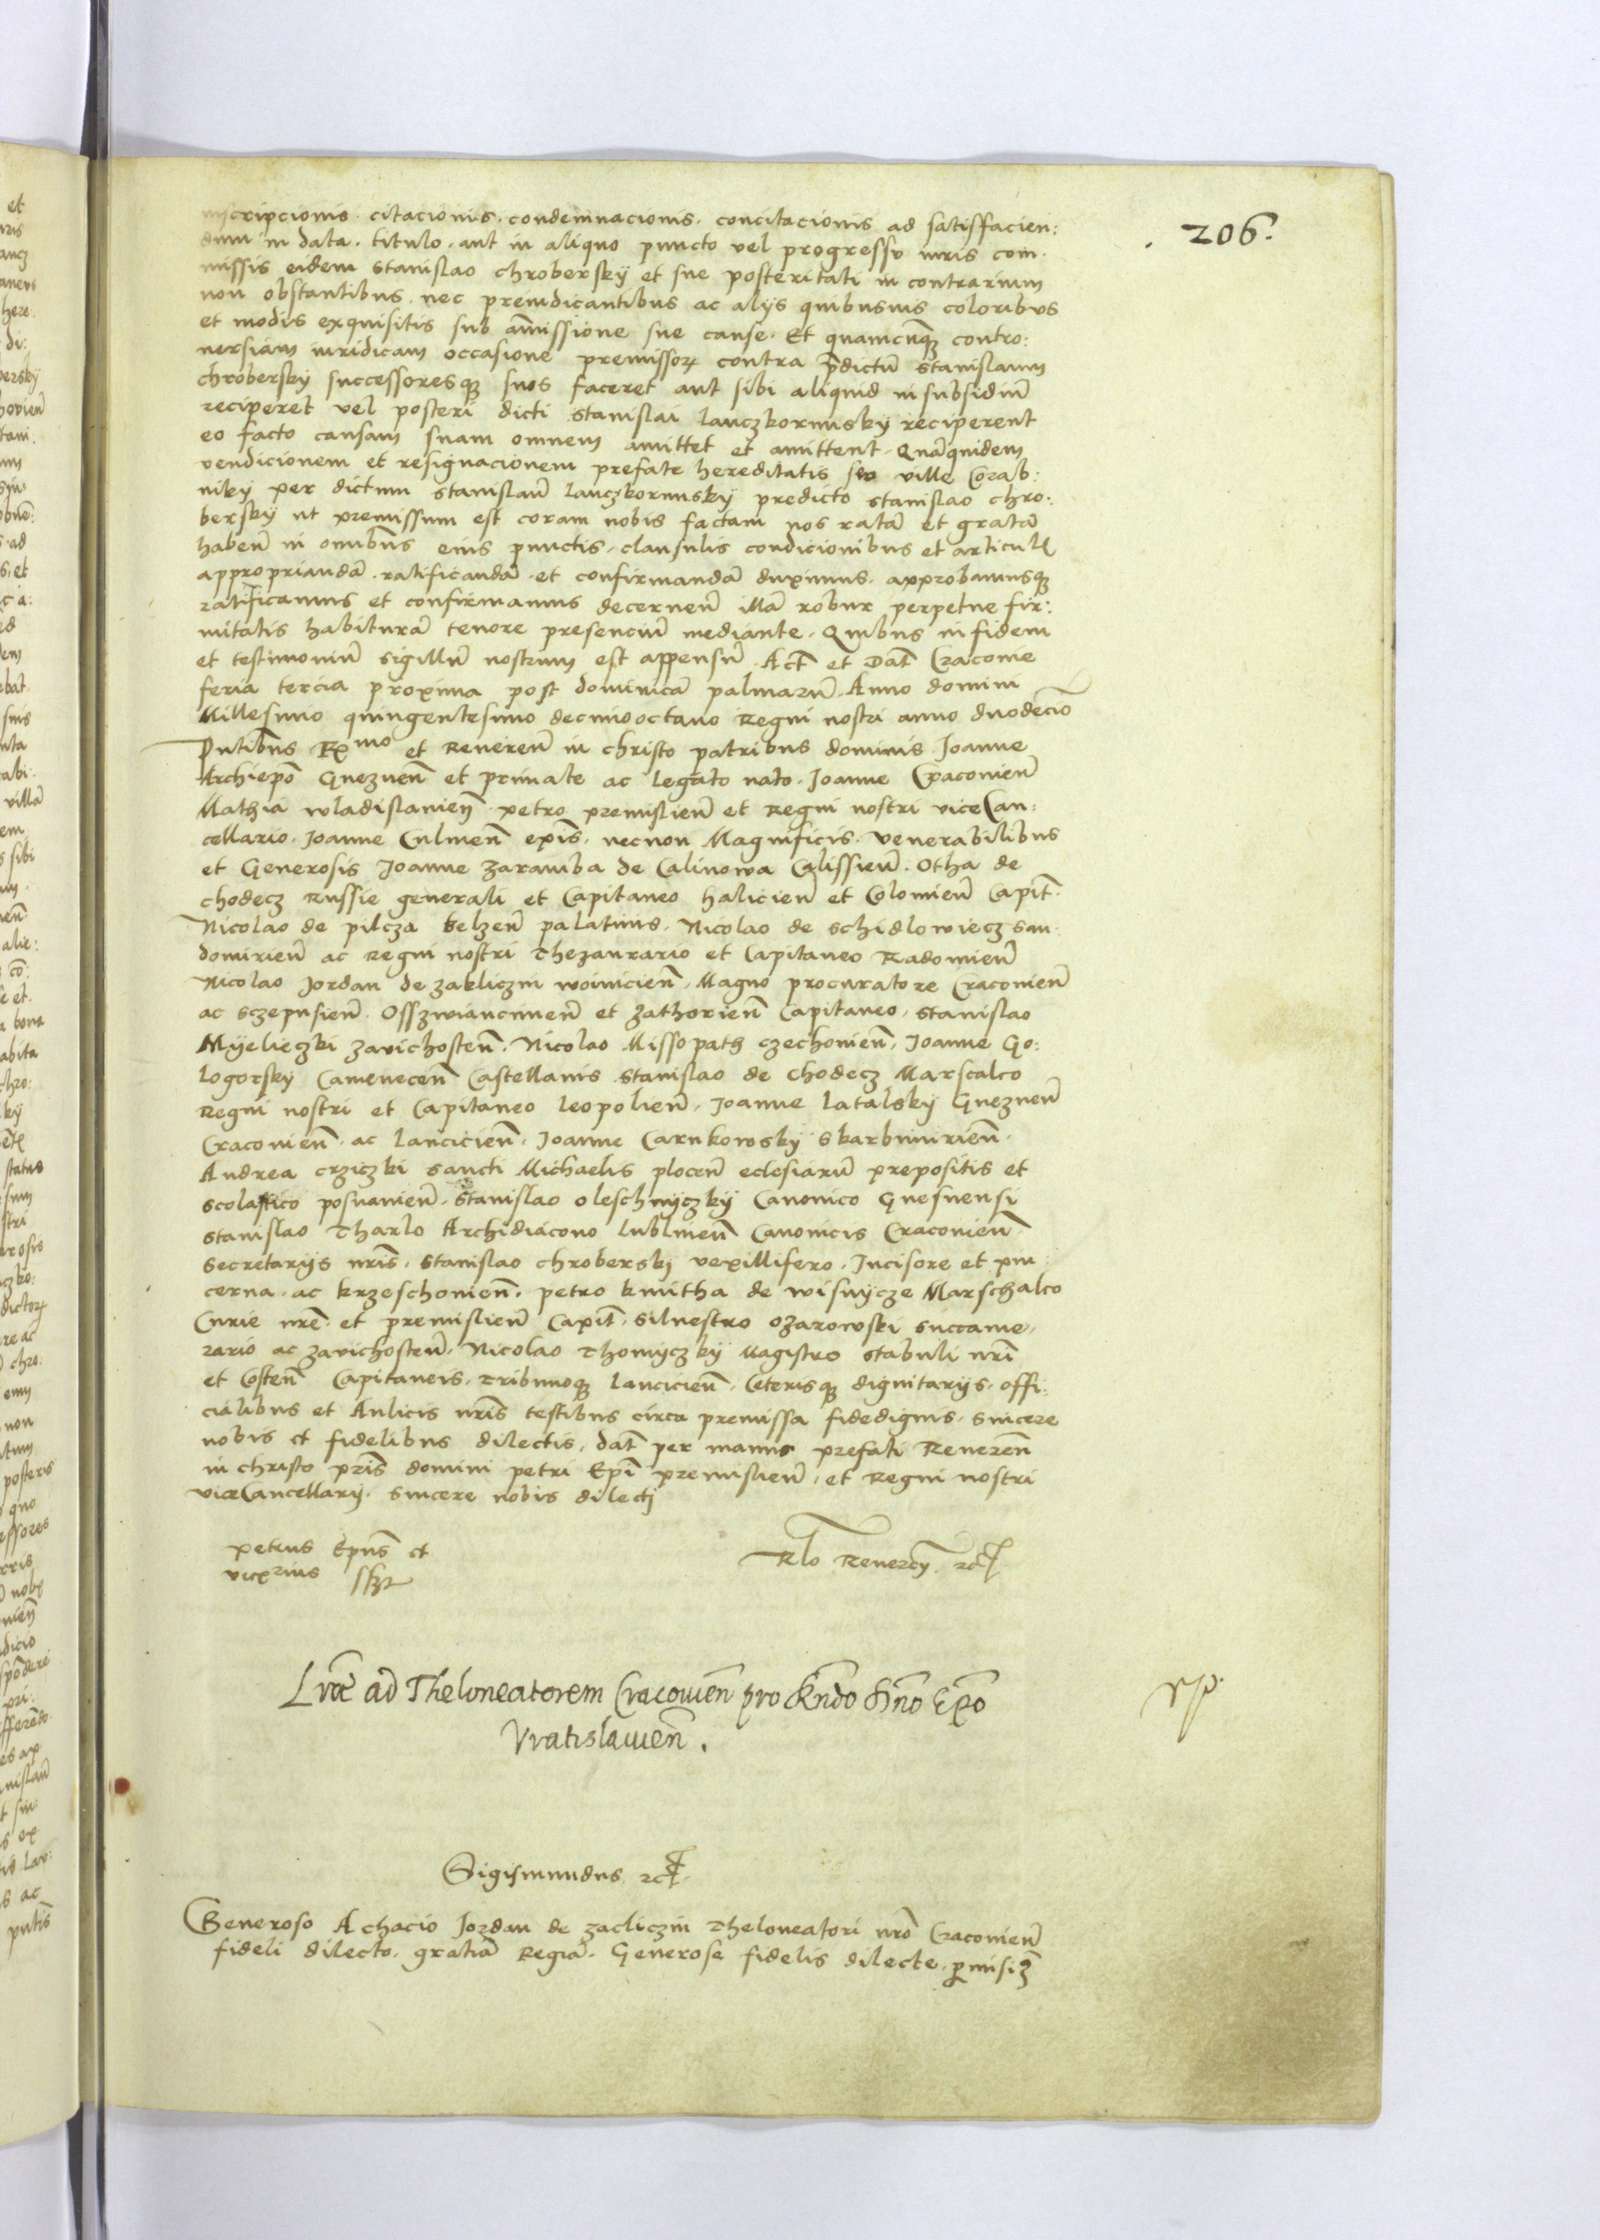 206.
inscripcionis. citacionis. condemnacionis. concitacionis ad satisfacien:
dum in data. titulo. aut in aliquo puncto vel progressu iuris com.
missis eidem Stanislao Chrobersky et sue posteritati in contrarium
non obstantibus. nec preiudicantibus ac alijs quibusuis coloribus
et modis exquisitis sub amissione sue cause. Et quamcunq contro:
uersiam iuridicam occasione premissor contra pdictu Stanislaum
Chrobersky successoresq suos faceret aut sibi aliquid in subsidiu
reciperet vel posteri dicti Stanislai Lanczkorunsky reciperent
eo facto causam suam omnem amittet et amittent. Quaquidem
vendicionem et resignacionem prefate hereditatis seu ville Grab:
niky per dictum Stanislau Lanczkorunsky predicto Stanislao Chro:
bersky ut premissum est coram nobis factam nos rata et grata
haben in omibus eius punctis. clausulis condicionibus et articul
appropriandā. ratificandā. et confirmandā duximus. approbamusq
ratificamus et confirmamus decernen illā robur perpetue fir:
mitatis habiturā tenore presenciū mediante. Quibus in fidem
et testimoniū sigillū nostrum est appensū. Act et Dat Cracouie
feria tercia proxima post dominicā palmarū. Anno domini
Millesimo quingentesimo decimooctauo Regni nostri anno duodecio
Pntibus Rmo et Reueren in christo patribus dominis Joanne
Archiepo Gneznen et primate ac Legato nato. Joanne Cracouien
Mathia Wladislauien. Petro Premislien et Regni nostri viceCan:
cellario. Joanne Culmen epis. necnon Magnificis. Venerabilibus
et Generosis Joanne Zaramba de Calinowa Calissien. Otha de
Chodecz Russie generali et Capitaneo Halicien et Colomien Capit.
Nicolao de Pilcza Belzen palatinis. Nicolao de Schidlowiecz San:
domirien ac Regni nostri Thezaurario et Capitaneo Radomien
Nicolao Jordan de Zakliczin Woinicien. Magno procuratore Cracouien
ac Sczepusien. Osszwiancimen et Zathorien Capitaneo. Stanislao
Myeliecczki Zavichosten. Nicolao Missopath Czechouien. Joanne Go:
logorsky Camenecen Castellanis Stanislao de Chodecz Marscalco
Regni nostri et Capitaneo Leopolien. Joanne Latalsky Gneznen
Cracouien. ac Lancicien. Joanne Carnkowsky Skarbimirien.
Andrea Crziczki Sancti Michaelis Plocen ecclesiarū prepositis et
Scolastico Posnanien. Stanislao Oleschnyczky Canonico Gnesnensi
Stanislao Tharlo Archidiacono Lublinen Canonicis Cracouien
Secretarijs nris. Stanislao Chrobersky vexillifero. Incisore et pin
cerna. ac Krzeschouien. Petro Kmitha de Wisnycze Marschalco
Curie nre et Premislien Capit. Siluestro Ozarowski Succame.
rario ac Zavichosten. Nicolao Thomyczky Magistro stabuli nri
et Costen Capitaneis. Tribunoq Lancicien. Ceterisq dignitarijs. offi:
cialibus et Aulicis nris testibus circa premissa fidedignis. Sincere
nobis et fidelibus dilectis. Dat per manus prefati Reueren
in christo pris domini Petri Epi Premislien. et Regni nostri
viceCancellarij. Sincere nobis dilecti
Petrus Epus et
vicerius sszt
Rlo Reueren. etc
Lrae ad Theloneatorem Cracouien pro Rndo Dno Epo
Vratislauien.
Sigismundus etc
Generoso Achacio Jordan de Zacliczin Theloneatori nro Cracouien
fideli dilecto. gratiā Regiā. Generose fidelis dilecte. pmisi